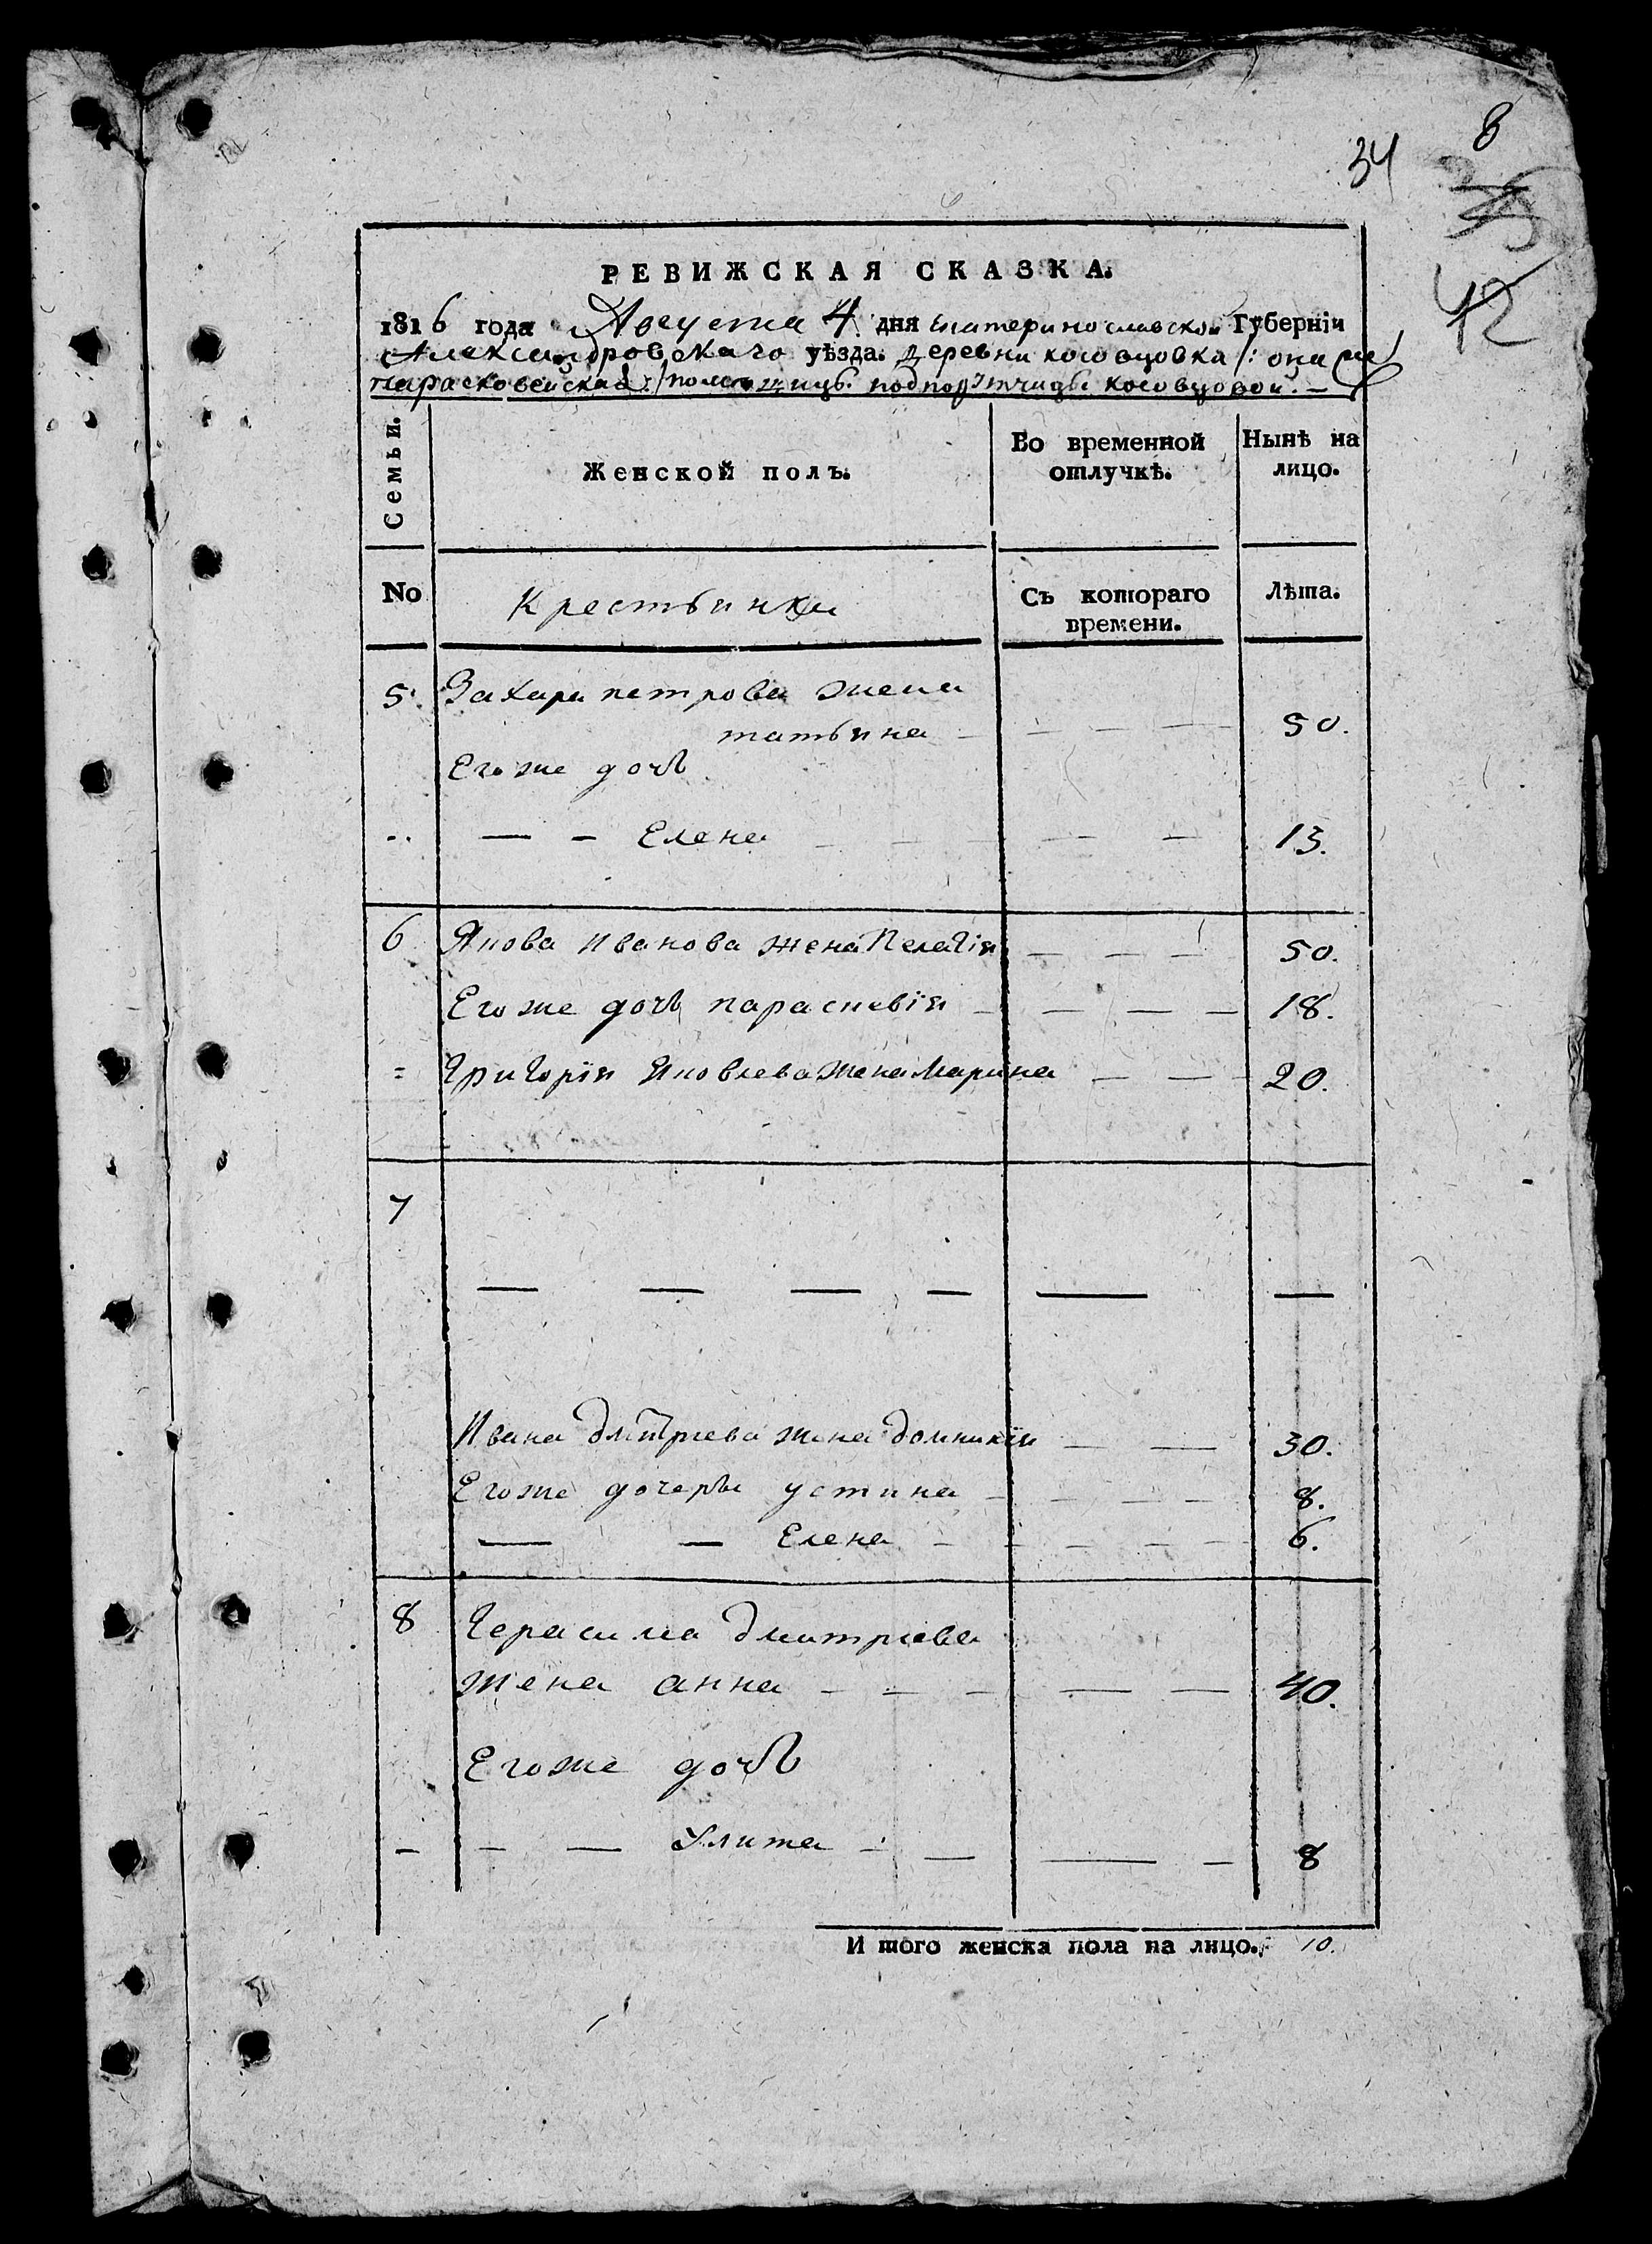 8
34
42
РЕВИЖСКАЯ СКАЗКА.
1816 года Августа 4 дня Екатеринославской Губерніи
Александровскаго уѣзда. деревни косовцовка /: она же
парасковейская :/ помещицы подпорутчицы косовцовой. —
Семьи.
Женской полъ.
Во временной отлучкѣ.
Нынѣ на лицо.
No
Крестьянки
Съ котораго времени.
Лѣта.
5. Захара петрова жена
татьяна — — — — 50.
Егоже дочь
— — Елена — — — — 13.
6 Якова Иванова жена Пелагія — — — 50.
Егоже дочь парасковія — — — — 18.
= Григорія Яковлева жена Марина — — 20.
7
— — — — — —
Ивана Дмитріева жена домникія — — 30.
Егоже дочери устина — — — — 8.
— — Елена — — — — — 6.
8 Герасима Дмитріева
жена анна — — — — — 40.
Егоже дочь
— — — Улита — — — — 8
И того женска пола на лицо. 10.